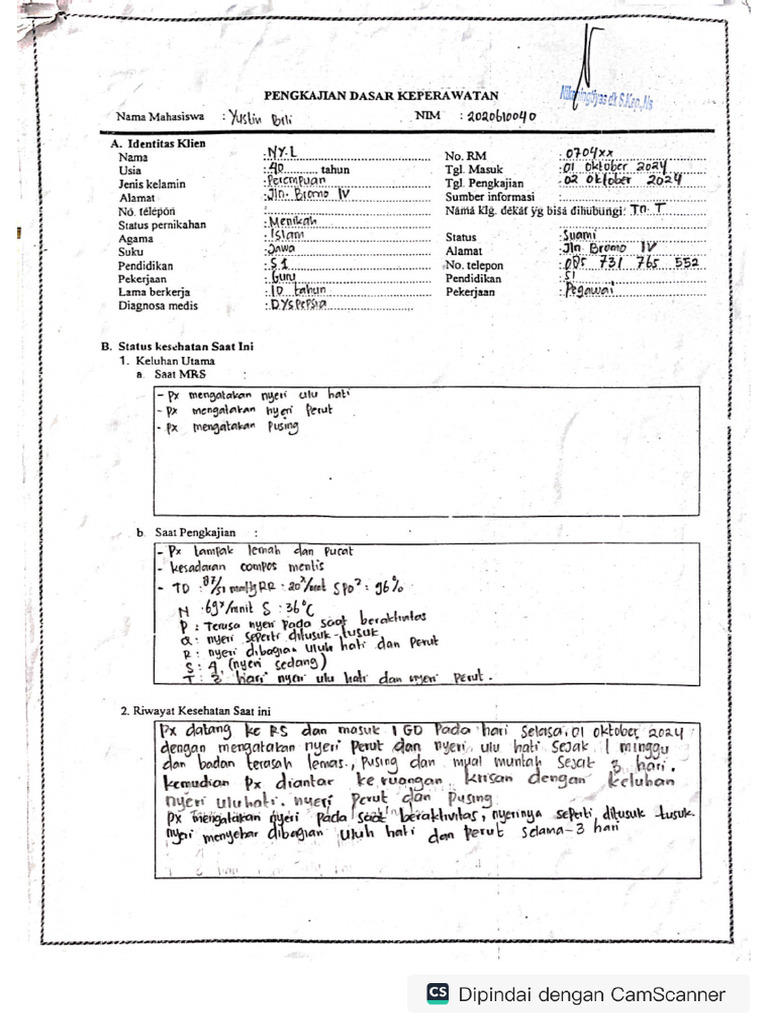 PENGKAJIAN DASAR KEPERAWATAN
Nama Mahasiswa : Yustin Beli NIM : 2020610040
A. Identitas Klien
Nama : NY. L No. RM : 0704xx
Usia : 40 tahun Tgl. Masuk : 01 Oktober 2024
Jenis kelamin : Perempuan Tgl. Pengkajian : 02 Oktober 2024
Alamat : Jln. Bromo IV Sumber informasi :
No. telepon : Nama klg. dekat yg bisa dihubungi: Tn. T
Status pernikahan : Menikah
Agama : Islam Status : Suami
Suku : Jawa Alamat : Jln Bromo IV
Pendidikan : S1 No. telepon : 085 731 765 552
Pekerjaan : Guru Pendidikan : S1
Lama berkerja : 10 tahun Pekerjaan : Pegawai
Diagnosa medis : Dyspepsia
B. Status kesehatan Saat Ini
1. Keluhan Utama
a. Saat MRS :
- Px mengatakan nyeri ulu hati
- Px mengatakan nyeri Perut
- Px mengatakan Pusing
b. Saat Pengkajian :
- Px tampak lemah dan pucat
- kesadaran compos mentis
- TD : 87/51 mmHg RR : 20x/mnit SPO2 : 96%
N : 69x/mnit S : 36°C
P : Terasa nyeri Pada saat beraktivitas
Q : nyeri seperti ditusuk-tusuk
R : nyeri dibagian uluh hati dan Perut
S : 4 (nyeri sedang)
T : 3 hari nyeri ulu hati dan nyeri Perut.
2. Riwayat Kesehatan Saat ini
Px datang ke RS dan masuk IGD Pada hari Selasa, 01 oktober, 2024
dengan mengatakan nyeri Perut dan nyeri ulu hati sejak 1 minggu
dan badan terasah lemas, pusing dan mual muntah sejak 3 hari.
kemudian Px diantar ke ruangan krisan dengan keluhan
nyeri uluhati. nyeri Perut dan Pusing
Px mengatakan nyeri Pada saat beraktivitas, nyerinya seperti ditusuk-tusuk.
nyeri menyebar dibagian uluh hati dan Perut selama-3 hari
CS Dipindai dengan CamScanner